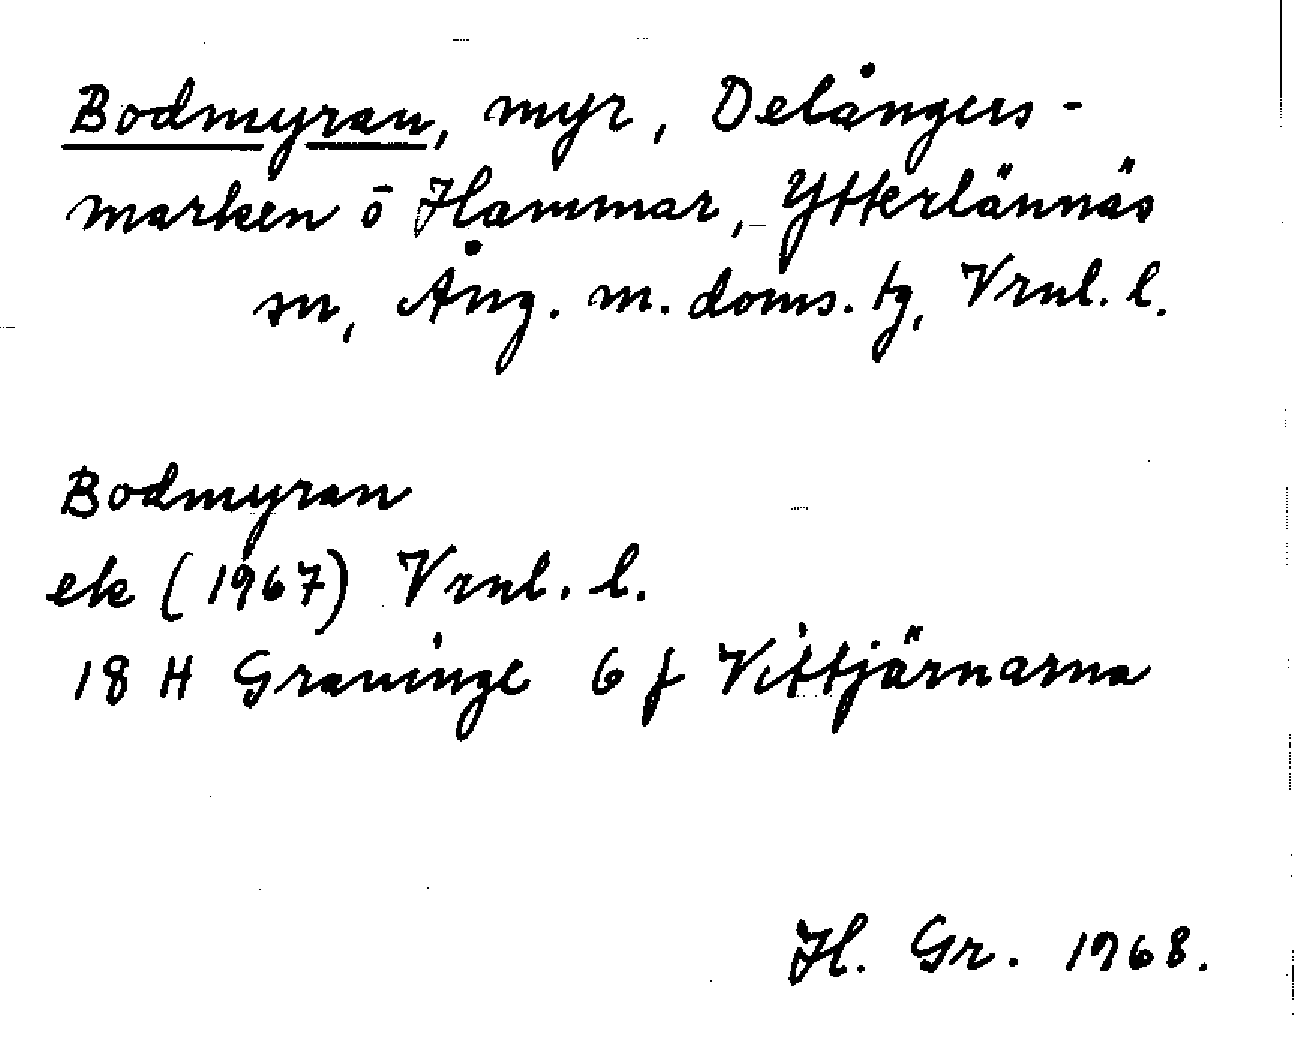 Bodmyran, myr, Delångers-
marken ō Hammar, Ytterlännäs
sn, Ång. m. doms. tg, Vrnl. l.
Bodmyran
ek (1967) Vrnl. l.
18 H Graninge 6 f Vittjärnarna
H. Gr. 1968.